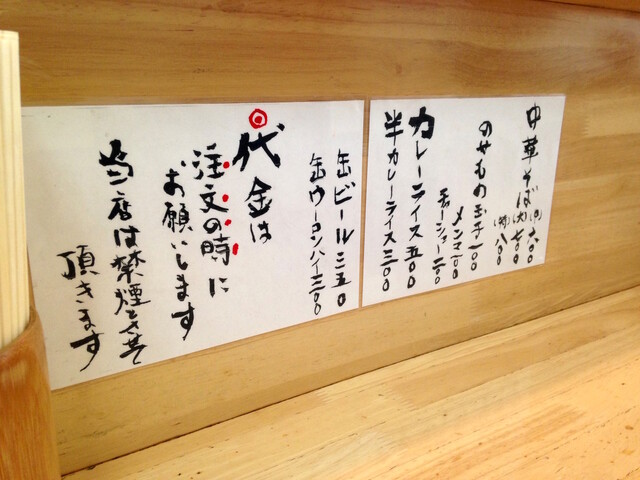 中華そば(小)六〇〇
(大)七〇〇
(特)八〇〇
のせもの玉子一〇〇
メンマ一〇〇
チャーシュー二〇〇
カレーライス五〇〇
半カレーライス三〇〇
缶ビール二五〇
缶ウーロンハイ三〇〇
代金は
注文の時に
お願いします
当店は禁煙とさせて
頂きます